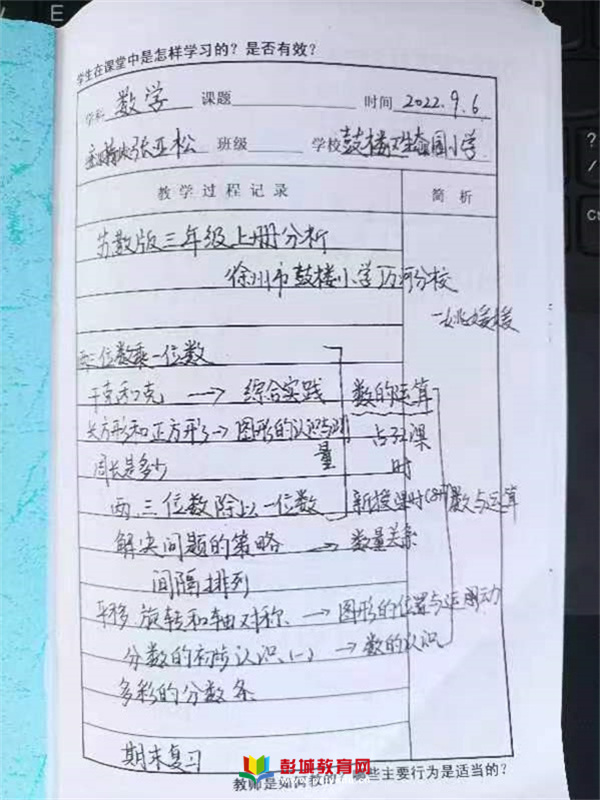 学生在课堂中是怎样学习的？是否有效？
学科 数学 课题 时间 2022.9.6
张亚松 班级 学校 鼓楼生态园小学
教学过程记录 简析
苏教版三年级上册分析
徐州市鼓楼小学万河分校
姚媛媛
两三位数乘一位数
千克和克 → 综合实践 数的运算
长方形和正方形 → 图形的认识与测量 占32课时
周长是多少
两、三位数除以一位数 新授课时 数与运算
解决问题的策略 → 数量关系
间隔排列
平移、旋转和轴对称 → 图形的位置与运动
分数的初步认识(一) → 数的认识
多彩的分数条
期末复习
彭城教育网
教师是如何教的？哪些主要行为是适当的？